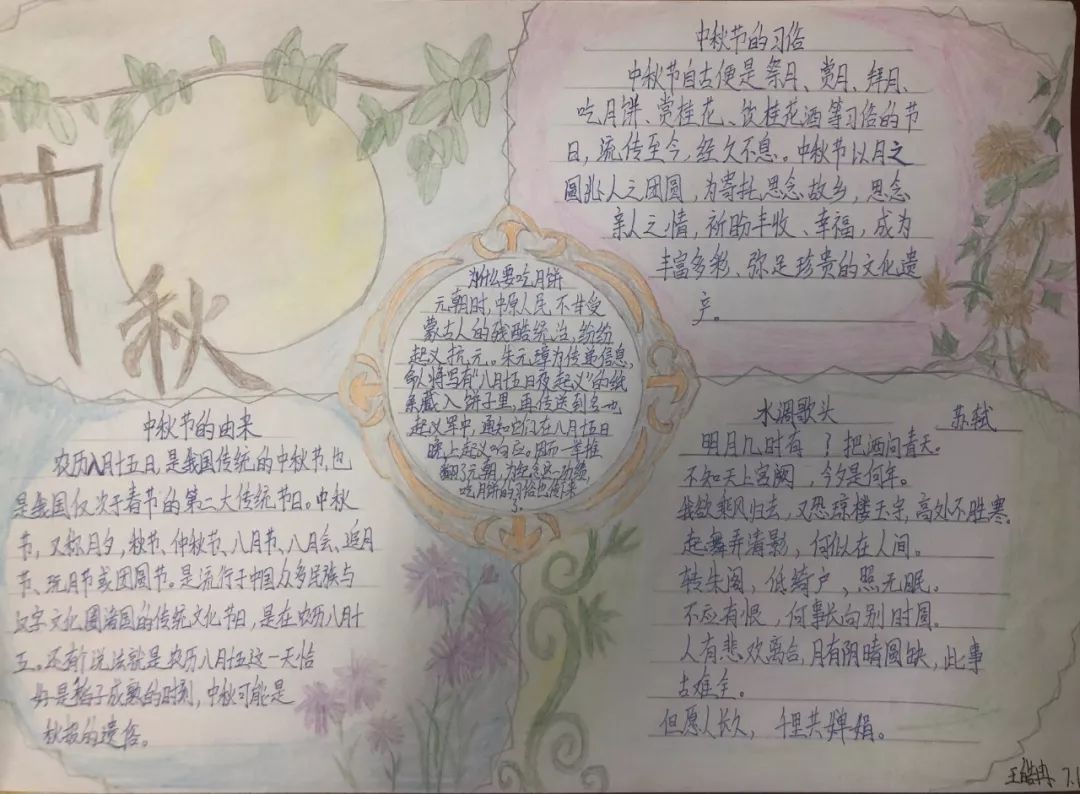 中
秋
中秋节的习俗
中秋节自古便是祭月、赏月、拜月、
吃月饼、赏桂花、饮桂花酒等习俗的节
日，流传至今，经久不息。中秋节以月之
圆兆人之团圆，为寄托思念故乡，思念
亲人之情，祈盼丰收、幸福，成为
丰富多彩、弥足珍贵的文化遗
产。
为什么要吃月饼
元朝时，中原人民不甘受
蒙古人的残酷统治，纷纷
起义抗元。朱元璋为传递信息，
命人将写有“八月十五日夜起义”的纸
条藏入饼子里，再传送到各地
起义军中，通知它们在八月十五日
晚上起义响应。因而一举推
翻了元朝，为纪念这一功绩
吃月饼的习俗也传来
了。
中秋节的由来
农历八月十五日，是我国传统的中秋节，也
是我国仅次于春节的第二大传统节日。中秋
节，又称月夕，秋节、仲秋节、八月节、八月会、追月
节、玩月节或团圆节。是流行于中国众多民族与
汉字文化圈诸国的传统文化节日，是在农历八月十
五。还有个说法就是农历八月十五这一天恰
好是稻子成熟的时刻，中秋可能是
秋报的遗俗。
水调歌头 苏轼
明月几时有？把酒问青天。
不知天上宫阙，今夕是何年。
我欲乘风归去，又恐琼楼玉宇，高处不胜寒。
起舞弄清影，何似在人间。
转朱阁，低绮户，照无眠。
不应有恨，何事长向别时圆。
人有悲欢离合，月有阴晴圆缺，此事
古难全。
但愿人长久，千里共婵娟。
王皓冉 7.1